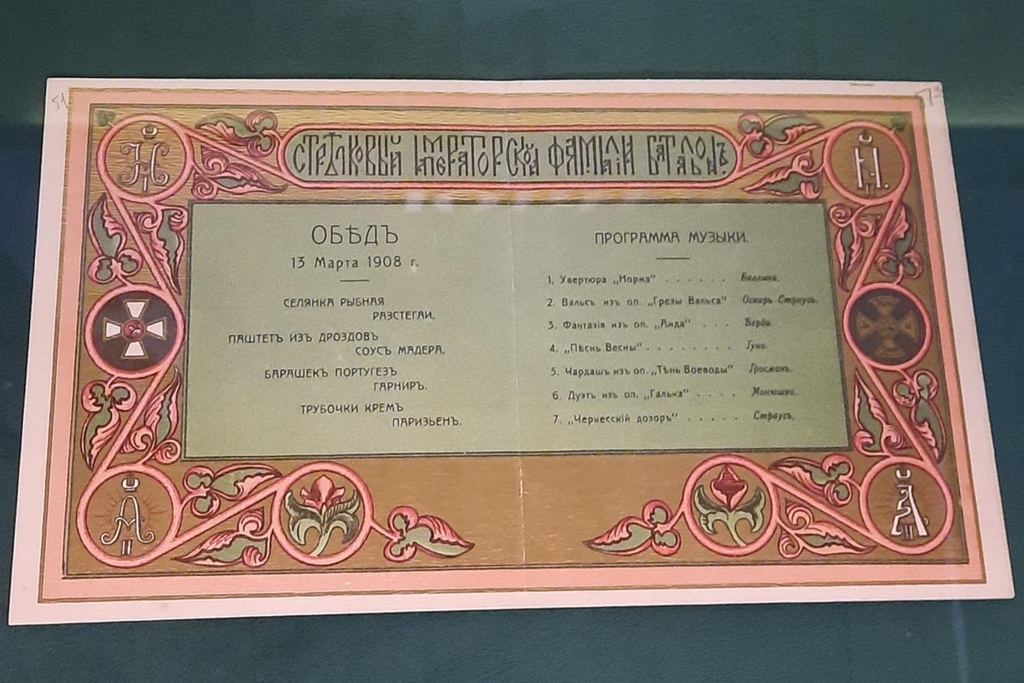 СТРѢЛКОВЫЙ ІМПЕРАТОРСКОЙ ФАМИЛІИ БАТАЛІОНЪ.
ОБѢДЪ
13 Марта 1908 г.
СЕЛЯНКА РЫБНАЯ
РАЗСТЕГАИ.
ПАШТЕТЪ ИЗЪ ДРОЗДОВЪ
СОУСЪ МАДЕРА.
БАРАШЕКЪ ПОРТУГЕЗЪ
ГАРНИРЪ.
ТРУБОЧКИ КРЕМЪ
ПАРИЗЬЕНЪ.
ПРОГРАММА МУЗЫКИ.
1. Увертюра „Норма" . . . . . Беллини.
2. Вальсъ изъ оп. „Грезы Вальса" Оскаръ Страусъ.
3. Фантазія изъ оп. „Аида" . . . Верди.
4. „Пѣснь Весны" . . . . . . . . Гуно.
5. Чардашъ изъ оп. „Тѣнь Воеводы" Гросманъ.
6. Дуэтъ изъ оп. „Галька" . . . . Монюшко.
7. „Черкесскій дозоръ" . . . . . Страусъ.
Н
I
Н
I.
А
II
А
III